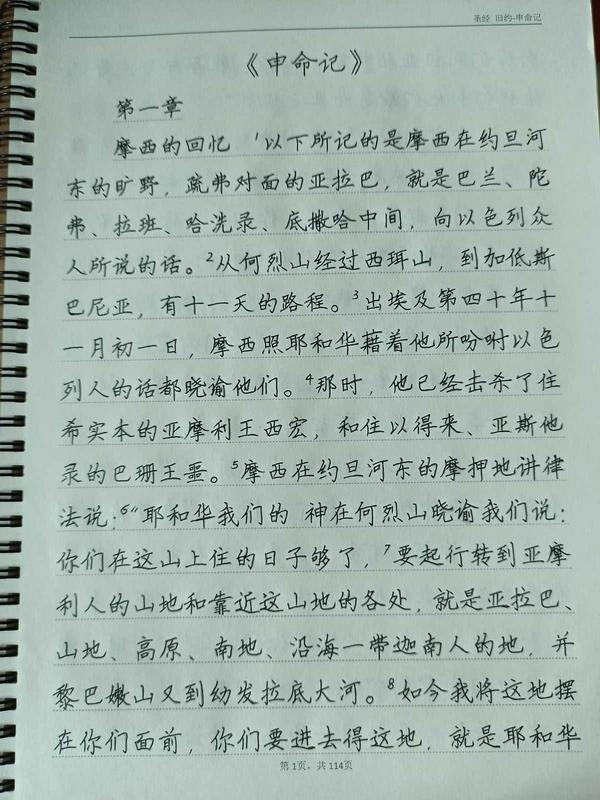 圣经 旧约-申命记
《申命记》
第一章
摩西的回忆 ¹以下所记的是摩西在约旦河
东的旷野，疏弗对面的亚拉巴，就是巴兰、陀
弗、拉班、哈洗录、底撒哈中间，向以色列众
人所说的话。²从何烈山经过西珥山，到加低斯
巴尼亚，有十一天的路程。³出埃及第四十年十
一月初一日，摩西照耶和华藉着他所吩咐以色
列人的话都晓谕他们。⁴那时，他已经击杀了住
希实本的亚摩利王西宏，和住以得来、亚斯他
录的巴珊王噩。⁵摩西在约旦河东的摩押地讲律
法说：⁶“耶和华我们的 神在何烈山晓谕我们说：
你们在这山上住的日子够了，⁷要起行转到亚摩
利人的山地和靠近这山地的各处，就是亚拉巴、
山地、高原、南地、沿海一带迦南人的地，并
黎巴嫩山又到幼发拉底大河。⁸如今我将这地摆
在你们面前，你们要进去得这地，就是耶和华
第1页，共114页